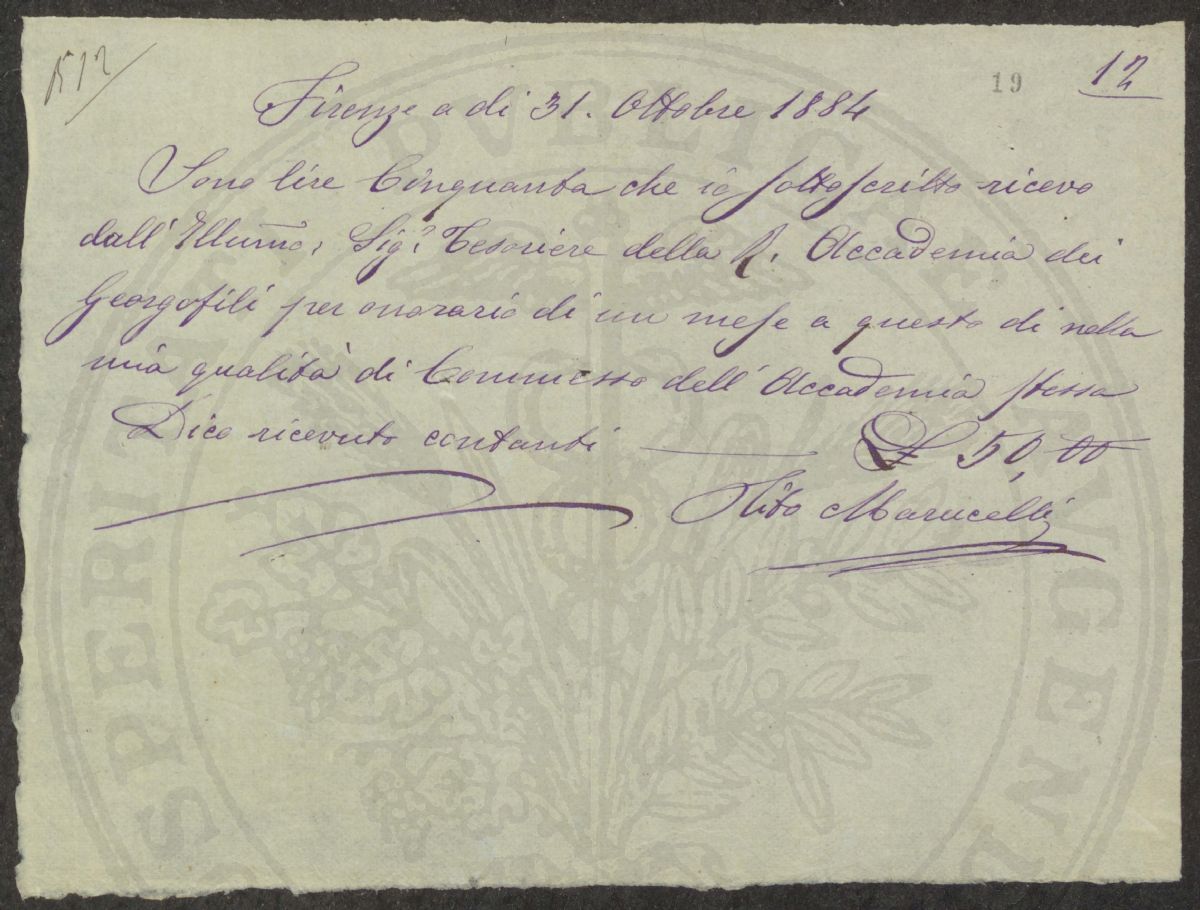 19
12
Firenze a di 31. Ottobre 1884
Sono lire Cinquanta che io sottoscritto ricevo
dall' Illumo, Sigr Tesoriere della R. Accademia dei
Georgofili per onorario di un mese a questo di nella
mia qualità di Commesso dell' Accademia stessa
Dico ricevuto contanti £ 50,00
Tito Marucelli
PROSPERITATI PVBLICAE AVGENDAE